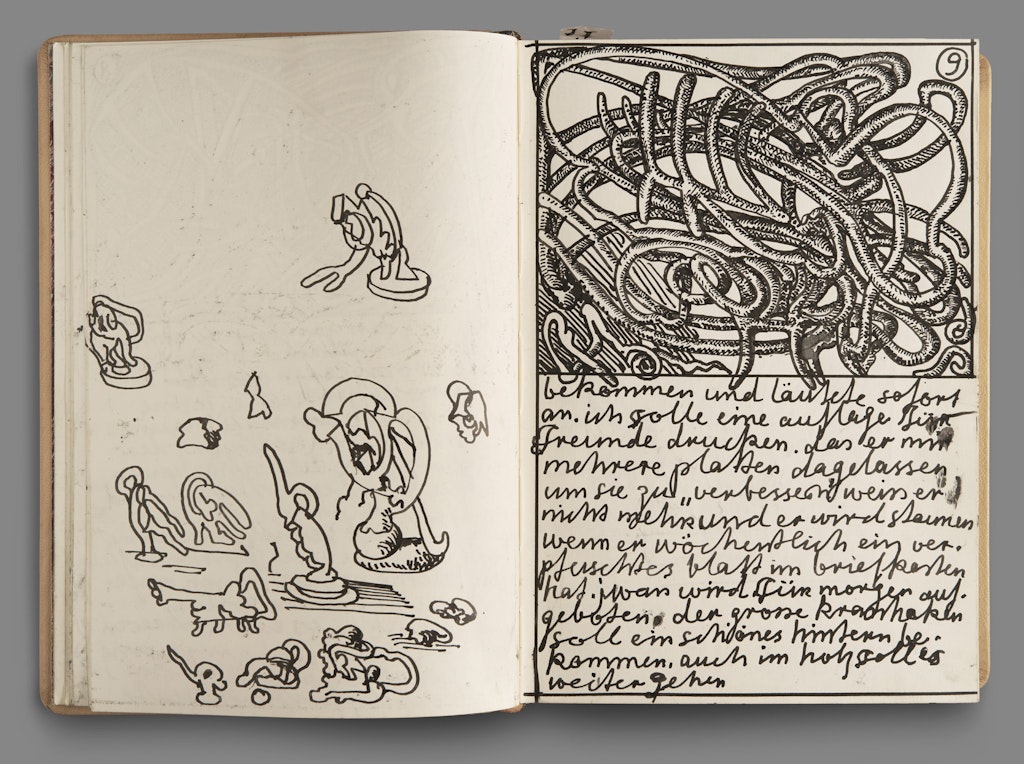 9
bekommen und läutete sofort
an. ich solle eine auflage für
freunde drucken. das er mir
mehrere platten dagelassen
um sie zu „verbessern" weiss er
nicht mehr und er wird staunen
wenn er wöchentlich ein ver-
pfuschtes blatt im briefkasten
hat. iwan wird für morgen auf-
geboten. der grosse kranhaken
soll ein schönes hintern be-
kommen. auch im holz soll es
weiter gehen